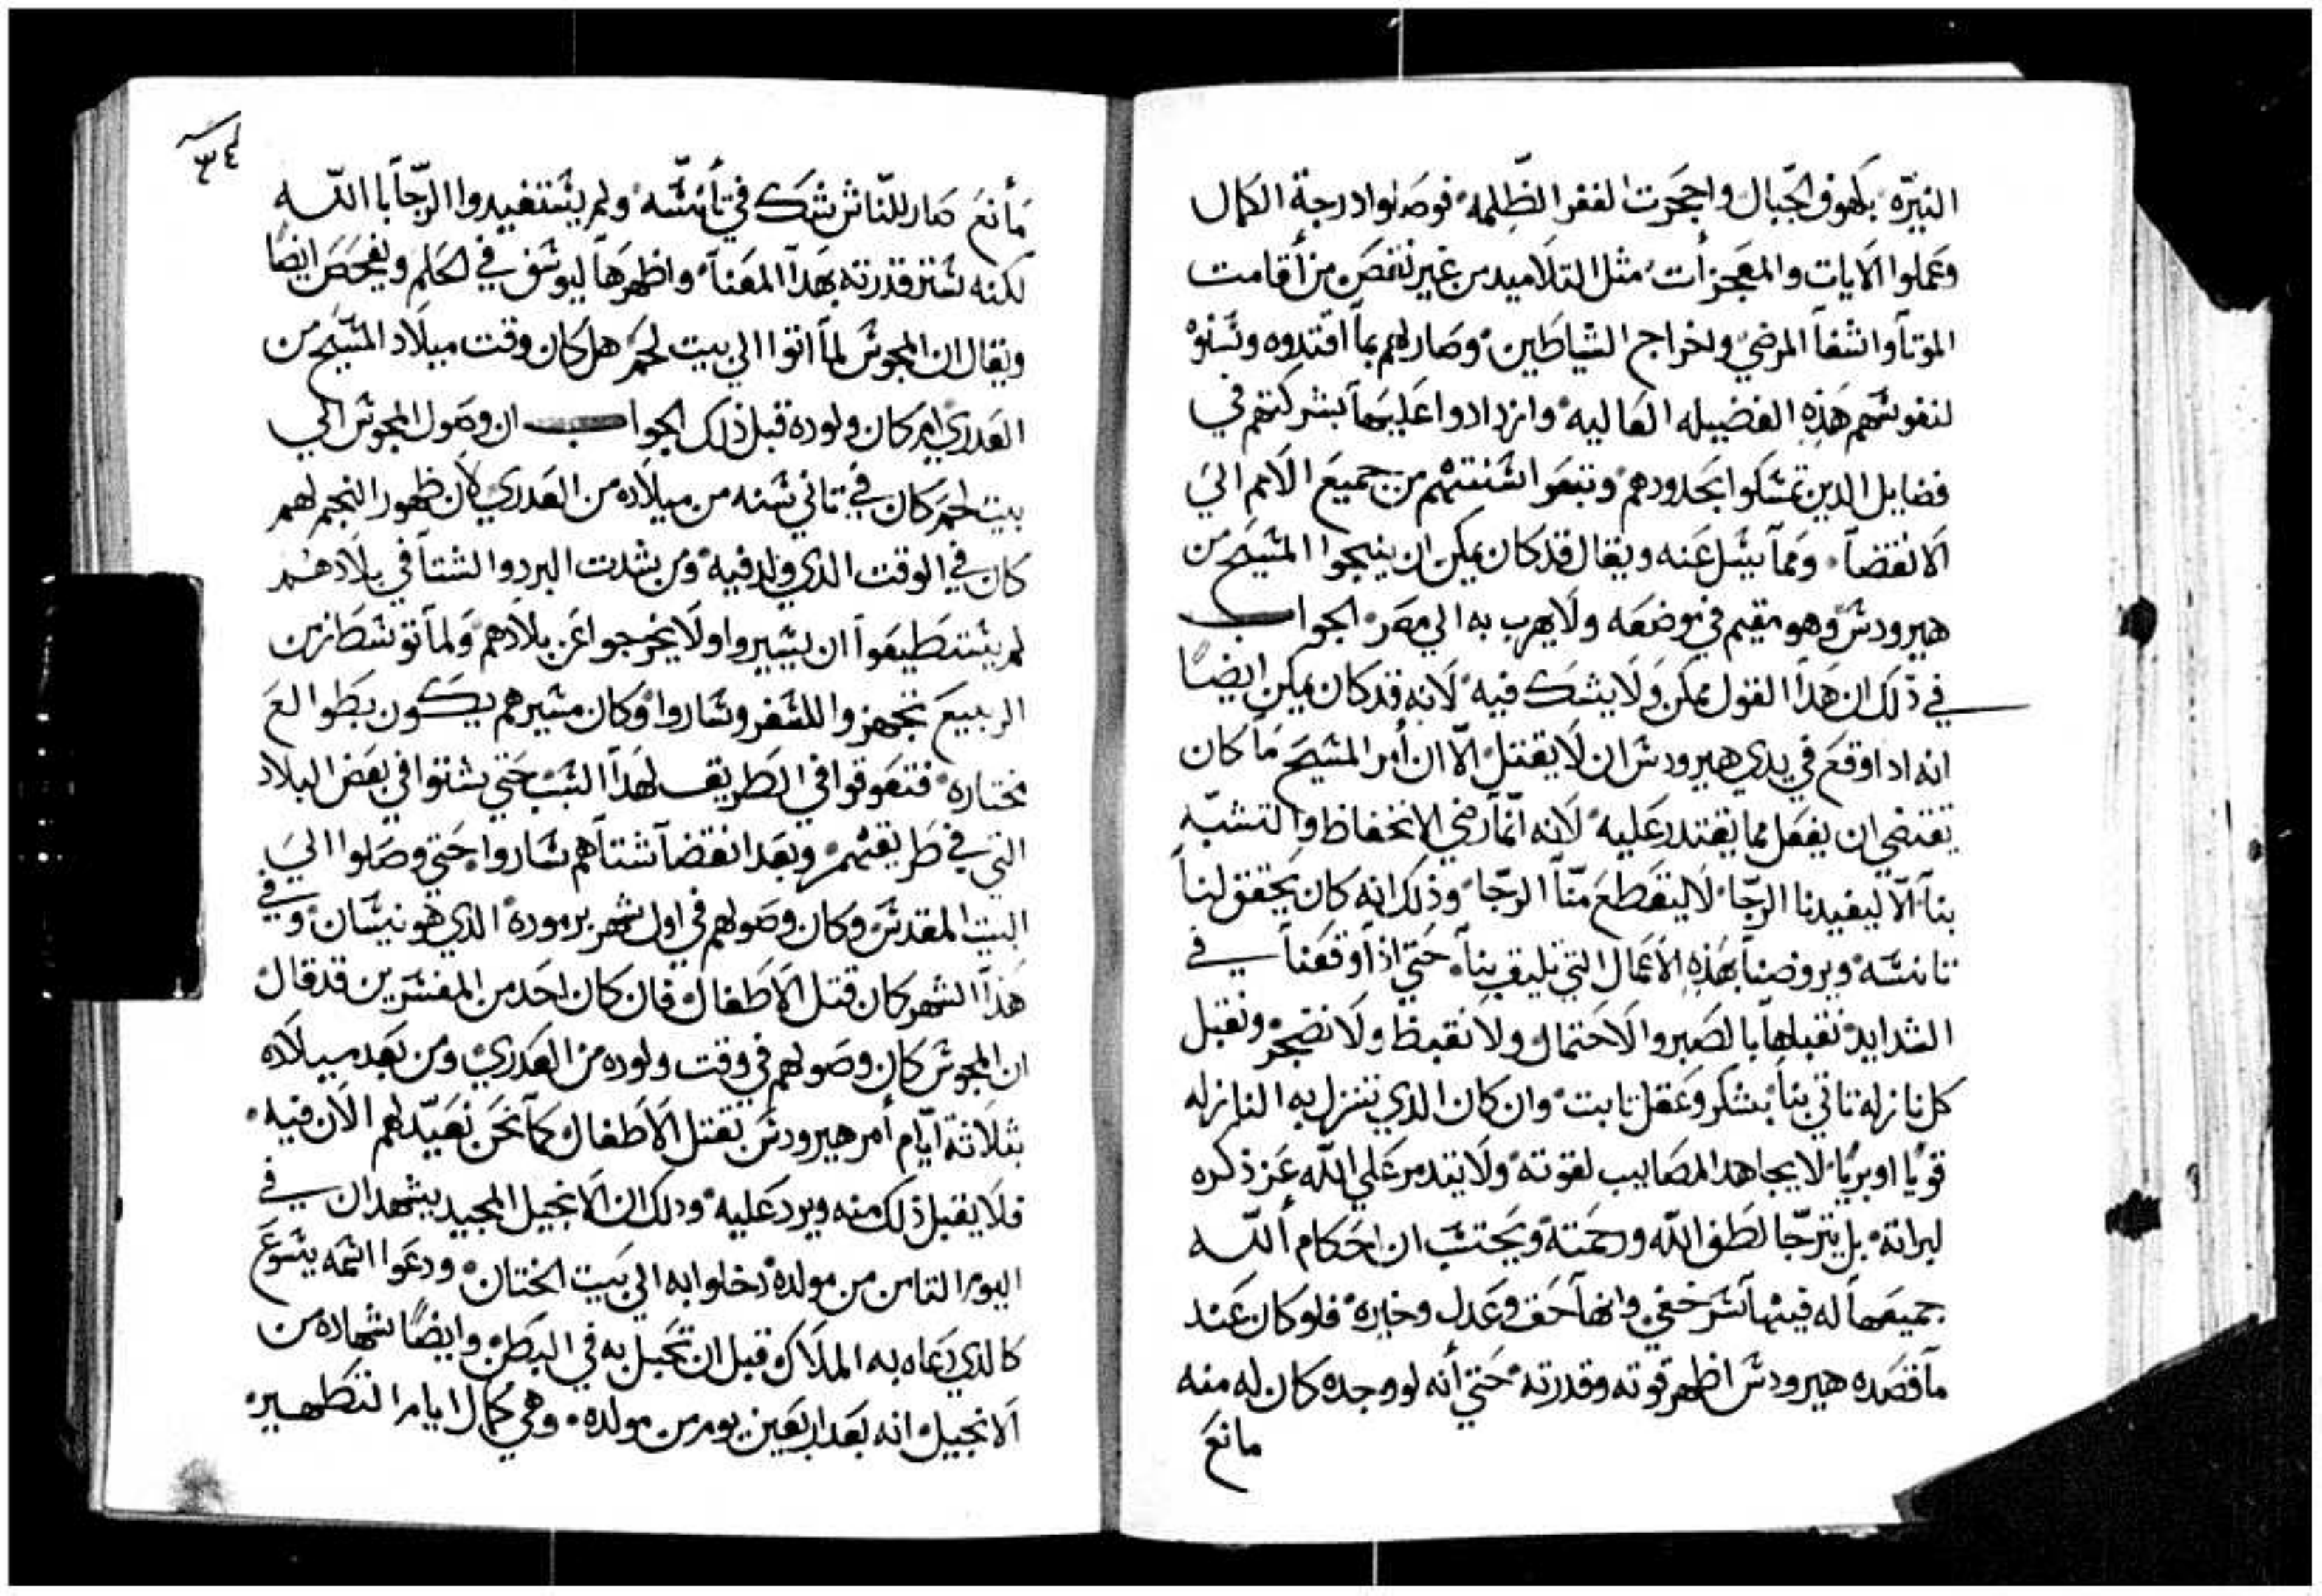 النيّره بكهوف الجّبال واججرت القفر الظّلمه فوصلوا درجة الكمال
وعملوا الايات والمعجزأت مثل التلاميد من غير نقص من أقامت
الموتآ واشفآ المرضي واخراج الشياطين وصار لهم بمآ اقتدوه وتسلوْ
لنفوسهم هَذِه الفضيله العاليه وازدادوا عليهآ بشركتهم في
فضايل الدين تمسكوا بحدودهم وتبعوا سنتهم من جميع الامم الي
الانقضآ ومَمآ يسل عَنه ويقال قد كان يمكن ان ينجوا المسيح من
هيرودس وهو مقيم في موضعه ولا يهرب به الي مصر الجواب
في ذلك ان هَدآ القول ممكن ولا يشك فيه لانه قد كان يمكن ايضًا
انه ادا وقع في يدي هيرودس ان لا يقتل الّا ان أمر المسيح مآ كان
يقتضي ان يفعل مما يقتدر عليه لانه انّمآ رضي الانخفاظ والتشبّه
بنآ الّا ليفيدنا الرجّا لا ليقطع منّآ الرجّا وذلك انه كان يحقق لنآ
تانسه ويروضنآ بهَذِه الاعمال التي تليق بنآ حتي اذآ وقعنآ في
الشدايد نقبلهآ بالصبر والاحتمال ولا نقبظ ولا نضجر ونقبل
كل نازله تاتي بنآ بشكر وعقل تابت وان كان الذي تنزل به النازله
قويًا او بريًا لا يجاهد المصايب لقوته ولا يتدمر علي الله عز ذكره
لبراته بل يترجّا لطف الله ورحمته ويحتسب ان احكام ألله
جميعهآ له فيهآ سر خفي وانهآ حق وعدل وخيره فلو كان عند
مآ قصده هيرودس اظهر قوته وقدرته حتي أنه لو وجده كان له منه
مانع
٣٤
مأنع صار للنّاس شك في تأنسّه ولم يستفيدوا الرّجآ باالله
لكنه ستر قدرته بهَدآ المعنآ واظهرهآ ليوسف في الحلم ويفحص ايضًا
ويقال ان المجوس لمآ اتوا الي بيت لحم هل كان وقت ميلاد المسيح من
العدري ام كان ولوده قبل ذلك الجواب ان وصول المجوس الي
بيت لحم كان في تاني سنه من ميلاده من العدري لان ظهور النجم لهم
كان في الوقت الذي ولد فيه ومن شدت البرد والشتآ في بلادهم
لم يستطيعوآ ان يسيروا ولا يخرجوا عن بلادهم ولمآ توسط ازمن
الربيع تجهزوا للسفر وساروا وكان مسيرهم يكون بطوالع
مختاره فتعوقوا في الطريق لهَدآ السبب حتي شتوا في بعض البلاد
التي في طريقهم وبعد انقضآ شتاهم ساروا حتي وصلوا الي
البيت المقدس وكان وصولهم في اول شهر برموده الذي هو نيسان وفي
هذآ الشهر كان قتل الاطفال فان كان احد من المفسرين قد قال
ان المجوس كان وصولهم في وقت ولوده من العدري ومن بعد ميلاده
بثلاثة ايّام أمر هيرودس بقتل الاطفال كمآ نحن نعيّد لهم الان فيه
فلا يقبل ذلك منه ويرد عليه ودلك ان الانجيل المجيد يشهد ان في
اليوم التامن من مولده دخلوا به الي بيت الختان ودعوا اسمه يسوع
كالذي دعاه به الملاك قبل ان تحبل به في البطن وايضًا شهاده من
الانجيل انه بعد اربعين يوم من مولده وهي كمال ايام التطهير